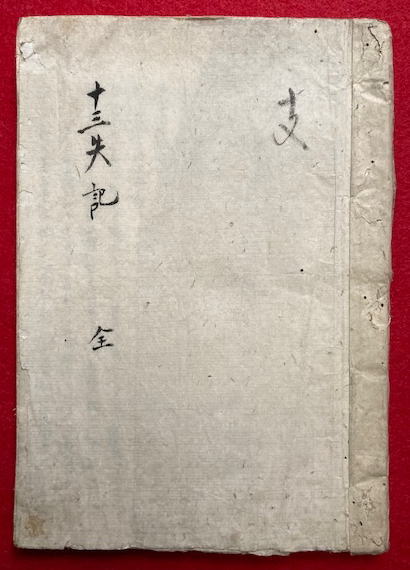 支
十三失記 全